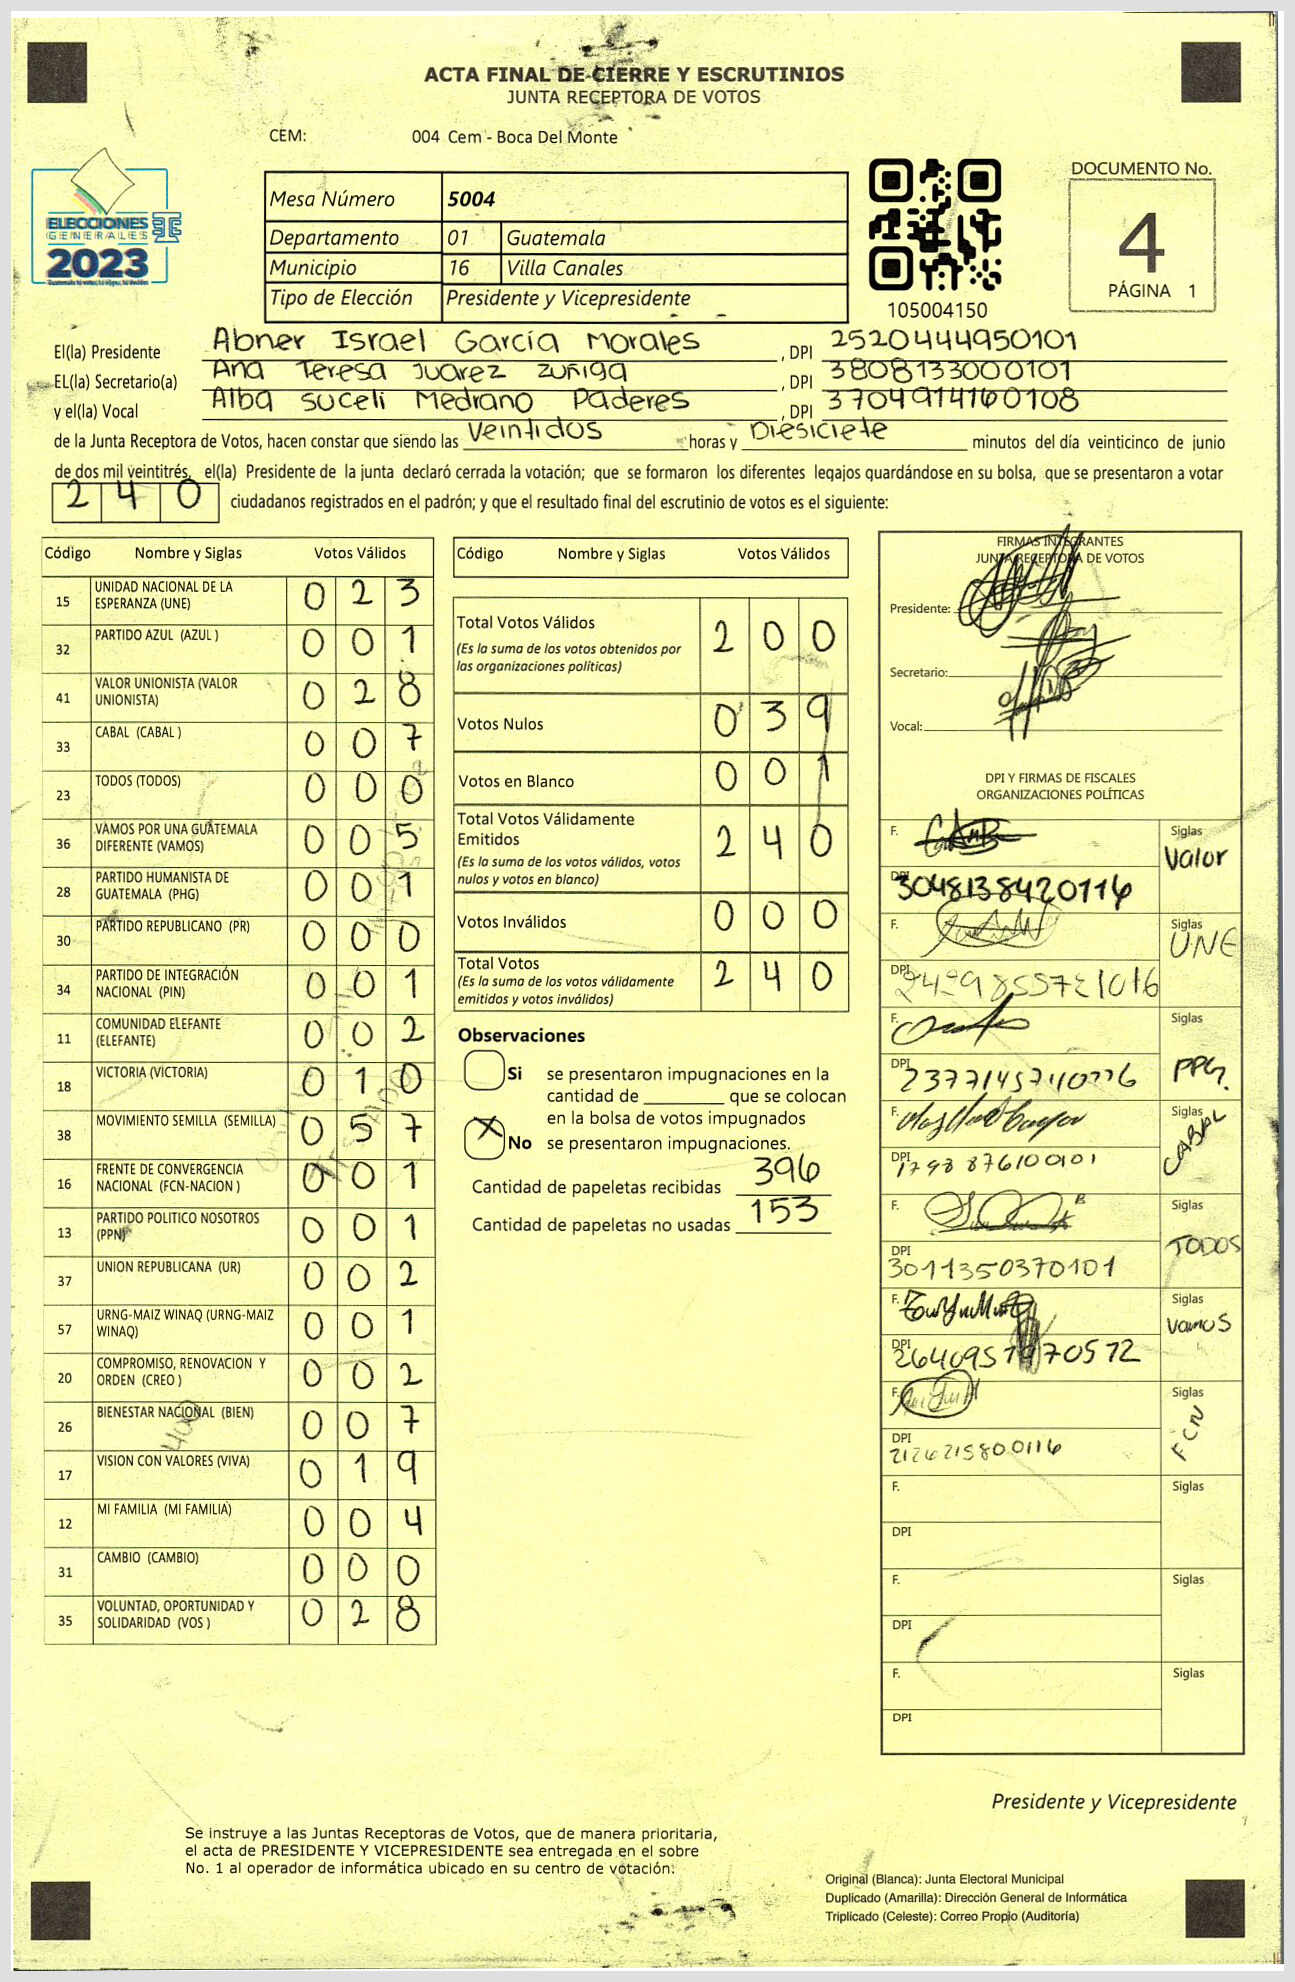 ACTA FINAL DE CIERRE Y ESCRUTINIOS
JUNTA RECEPTORA DE VOTOS
CEM: 004 Cem - Boca Del Monte
ELECCIONES
GENERALES
2023
Mesa Número 5004
Departamento 01 Guatemala
Municipio 16 Villa Canales
Tipo de Elección Presidente y Vicepresidente
105004150
DOCUMENTO No.
4
PÁGINA 1
El(la) Presidente Abner Israel García Morales , DPI 2520444950101
EL(la) Secretario(a) Ana Teresa Juarez Zuñiga , DPI 3808133000101
y el(la) Vocal Alba Suceli Medrano Paderes , DPI 3704914160108
de la Junta Receptora de Votos, hacen constar que siendo las Veintidos horas y Diesiciete minutos del día veinticinco de junio
de dos mil veintitrés, el(la) Presidente de la junta declaró cerrada la votación; que se formaron los diferentes legajos quardándose en su bolsa, que se presentaron a votar
240 ciudadanos registrados en el padrón; y que el resultado final del escrutinio de votos es el siguiente:
Código Nombre y Siglas Votos Válidos
15 UNIDAD NACIONAL DE LA ESPERANZA (UNE) 023
32 PARTIDO AZUL (AZUL ) 001
41 VALOR UNIONISTA (VALOR UNIONISTA) 028
33 CABAL (CABAL ) 007
23 TODOS (TODOS) 000
36 VAMOS POR UNA GUATEMALA DIFERENTE (VAMOS) 005
28 PARTIDO HUMANISTA DE GUATEMALA (PHG) 001
30 PARTIDO REPUBLICANO (PR) 000
34 PARTIDO DE INTEGRACIÓN NACIONAL (PIN) 001
11 COMUNIDAD ELEFANTE (ELEFANTE) 002
18 VICTORIA (VICTORIA) 010
38 MOVIMIENTO SEMILLA (SEMILLA) 057
16 FRENTE DE CONVERGENCIA NACIONAL (FCN-NACION ) 001
13 PARTIDO POLITICO NOSOTROS (PPN) 001
37 UNION REPUBLICANA (UR) 002
57 URNG-MAIZ WINAQ (URNG-MAIZ WINAQ) 001
20 COMPROMISO, RENOVACION Y ORDEN (CREO ) 002
26 BIENESTAR NACIONAL (BIEN) 007
17 VISION CON VALORES (VIVA) 019
12 MI FAMILIA (MI FAMILIA) 004
31 CAMBIO (CAMBIO) 000
35 VOLUNTAD, OPORTUNIDAD Y SOLIDARIDAD (VOS ) 028
Código Nombre y Siglas Votos Válidos
Total Votos Válidos 200
(Es la suma de los votos obtenidos por las organizaciones políticas)
Votos Nulos 039
Votos en Blanco 001
Total Votos Válidamente Emitidos 240
(Es la suma de los votos válidos, votos nulos y votos en blanco)
Votos Inválidos 000
Total Votos 240
(Es la suma de los votos válidamente emitidos y votos inválidos)
Observaciones
Si se presentaron impugnaciones en la
cantidad de ________ que se colocan
en la bolsa de votos impugnados
X No se presentaron impugnaciones.
Cantidad de papeletas recibidas 396
Cantidad de papeletas no usadas 153
FIRMAS INTEGRANTES
JUNTA RECEPTORA DE VOTOS
Presidente:
Secretario:
Vocal:
DPI Y FIRMAS DE FISCALES
ORGANIZACIONES POLÍTICAS
F. Siglas Valor
DPI 3048138420116
F. Siglas UNE
DPI
F. Siglas
DPI
F. Siglas CABAL
DPI 1798 876100101
F. Siglas TODOS
DPI 3011350370101
F. Siglas Vamos
DPI
F. Siglas FCN
DPI 2126215800116
F. Siglas
DPI
F. Siglas
DPI
F. Siglas
DPI
Presidente y Vicepresidente
Se instruye a las Juntas Receptoras de Votos, que de manera prioritaria,
el acta de PRESIDENTE Y VICEPRESIDENTE sea entregada en el sobre
No. 1 al operador de informática ubicado en su centro de votación.
Original (Blanca): Junta Electoral Municipal
Duplicado (Amarilla): Dirección General de Informática
Triplicado (Celeste): Correo Propio (Auditoría)